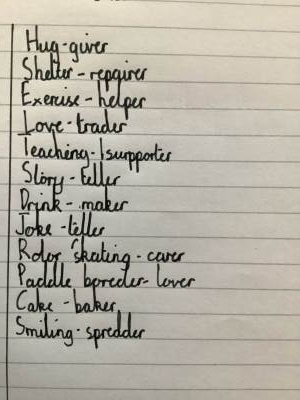 Hug-giver
Shelter-repairer
Exercise-helper
Love-trader
Teaching-surpporter
Story-teller
Drink-maker
Joke-teller
Rolor skating-carer
Paddle boreder-lover
Cake-baker
Smiling-spredder